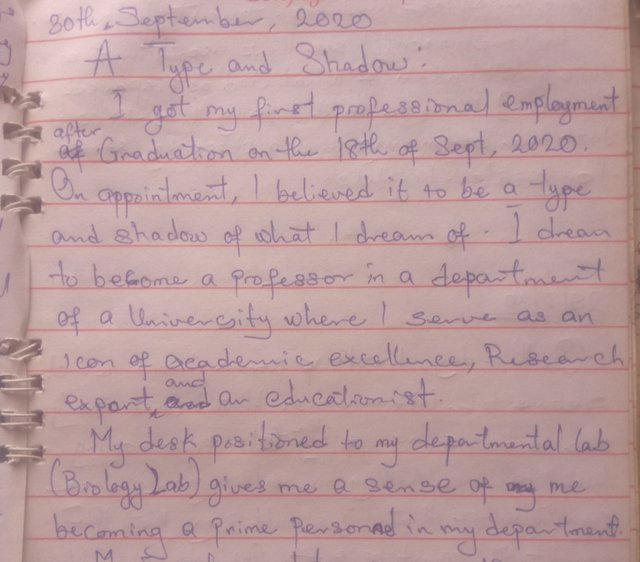 30th, September, 2020
A Type and Shadow:
I got my first professional employment
after
Graduation on the 18th of Sept, 2020.
On appointment, I believed it to be a type
and shadow of what I dream of. I dream
to become a professor in a department
of a University where I serve as an
icon of academic excellence, Research
and
expert, an educationist.
My desk positioned to my departmental lab
(Biology Lab) gives me a sense of me
becoming a prime personnel in my department.